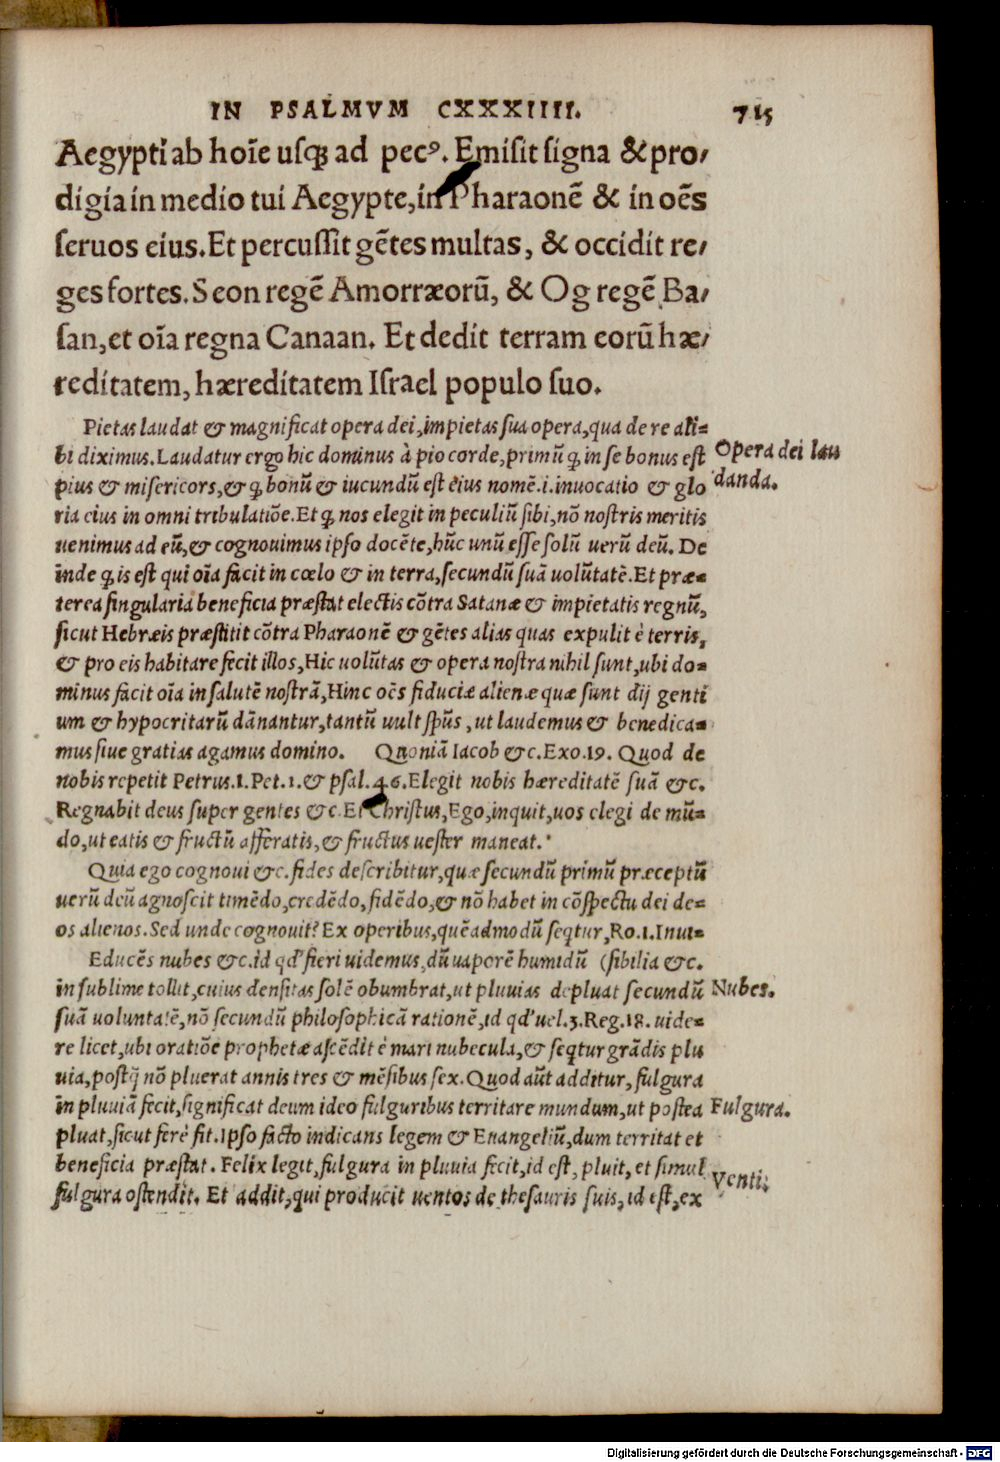 IN PSALMVM CXXXIIII. 715
Aegypti ab hoīe uſꝗ ad pecꝰ. Emiſit ſigna & pro/
digia in medio tui Aegypte, in Pharaonē & in oēs
ſeruos eius. Et percuſſit gētes multas, & occidit re/
ges fortes. Seon regē Amorræorū, & Og regē Ba/
ſan, et oīa regna Canaan. Et dedit terram eorū hæ/
reditatem, hæreditatem Iſrael populo ſuo.
Pietas laudat & magnificat opera dei, impietas ſua opera, qua de re ali=
bi diximus. Laudatur ergo hic dominus à pio corde, primū ꝙ in ſe bonus eſt
Opera dei lau
pius & miſericors, & ꝙ bonū & iucundū eſt eius nomē .i. inuocatio & glo
danda.
ria eius in omni tribulatiōe. Et ꝙ nos elegit in peculiū ſibi, nō noſtris meritis
uenimus ad eū, & cognouimus ipſo docēte, hūc unū eſſe ſolū uerū deū. De
inde ꝙ is eſt qui oīa facit in cœlo & in terra, ſecundū ſuā uolūtatē. Et præ=
terea ſingularia beneficia præſtat electis cōtra Satanæ & impietatis regnū,
ſicut Hebræis præſtitit cōtra Pharaonē & gētes alias quas expulit è terris,
& pro eis habitare fecit illos, Hic uolūtas & opera noſtra nihil ſunt, ubi do=
minus facit oīa in ſalutē noſtrā, Hinc oēs fiduciæ alienæ quæ ſunt dij genti
um & hypocritarū dānantur, tantū uult ſpūs, ut laudemus & benedica=
mus ſiue gratias agamus domino. Quoniā Iacob &c. Exo. 19. Quod de
nobis repetit Petrus. 1. Pet. 1. & pſal. 46. Elegit nobis hæreditatē ſuā &c.
Regnabit deus ſuper gentes &c. Et Chriſtus, Ego, inquit, uos elegi de mū=
do, ut eatis & fructū afferatis, & fructus ueſter maneat.
Quia ego cognoui &c. fides deſcribitur, quæ ſecundū primū præceptū
uerū deū agnoſcit timēdo, credēdo, fidēdo, & nō habet in cōſpectu dei de=
os alienos. Sed unde cognouit? Ex operibus, quēadmodū ſeqtur, Ro. 1. Inui=
Educēs nubes &c. id qd' fieri uidemus, dū uaporē humidū (ſibilia &c.
in ſublime tollit, cuius denſitas ſolē obumbrat, ut pluuias depluat ſecundū
Nubes.
ſuā uoluntatē, nō ſecundū philoſophicā rationē, id qd' uel. 3. Reg. 18. uide=
re licet, ubi oratiōe prophetæ aſcēdit è mari nubecula, & ſeqtur grādis plu
uia, poſtq̄ nō pluerat annis tres & mēſibus ſex. Quod aūt additur, fulgura
in pluuiā fecit, ſignificat deum ideo fulguribus territare mundum, ut poſtea
Fulgura.
pluat, ſicut ferè fit. Ipſo facto indicans legem & Euangeliū, dum territat et
beneficia præſtat. Felix legit, fulgura in pluuia fecit, id eſt, pluit, et ſimul
Venti.
fulgura oſtendit. Et addit, qui producit uentos de theſauris ſuis, id eſt, ex
Digitalisierung gefördert durch die Deutsche Forschungsgemeinschaft - DFG